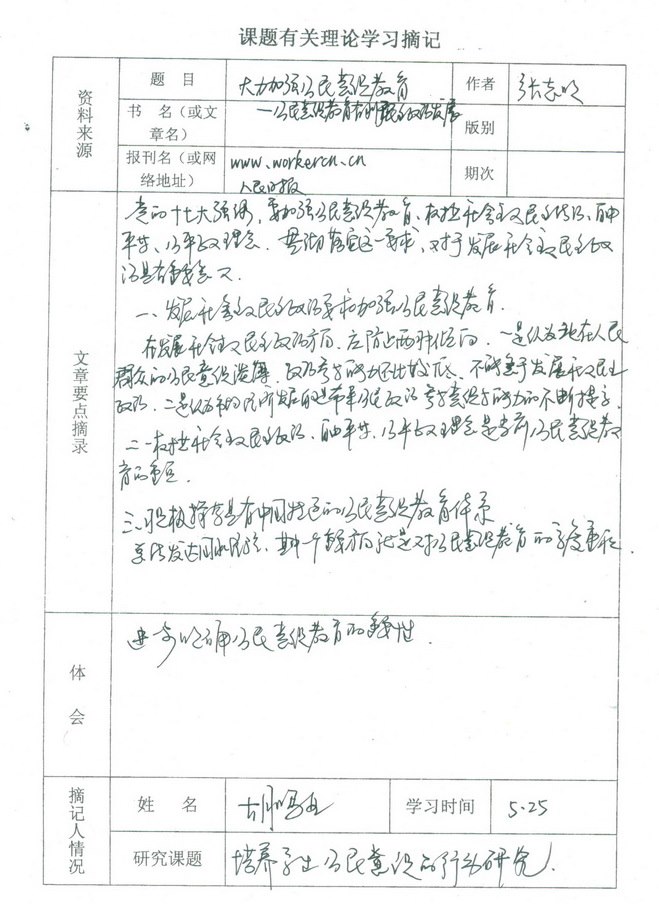 课题有关理论学习摘记
资料来源
题 目 大力加强公民意识教育 作者 张志明
—公民意识教育有利民主政治发展
书 名（或文章名） 版别
报刊名（或网络地址） www.workercn.cn 期次
人民日报
文章要点摘录
党的十七大强调，要加强公民意识教育，树立社会主义民主法治、自由
平等、公平正义理念。贯彻落实这一要求，对于发展社会主义民主政
治具有重要意义。
一、发展社会主义民主政治要求加强公民意识教育.
在发展社会主义民主政治方面，应防止两种倾向，一是认为现在人民
群众的公民意识淡薄，政治参与能力还比较低，不能急于发展社会主义民主
政治，二是认为市场经济发展自然带来公民政治参与意识与能力的不断提高.
二、树立社会主义民主政治、自由平等、公平正义理念是当前公民意识教
育的重点
三、积极探索具有中国特色的公民意识教育体系
发达国家 其中一个重要方面就是对公民意识教育的高度重视.
体会
进一步明确公民意识教育的重要性.
摘记人情况
姓 名 胡 学习时间 5.25
研究课题 培养学生公民意识的行动研究.